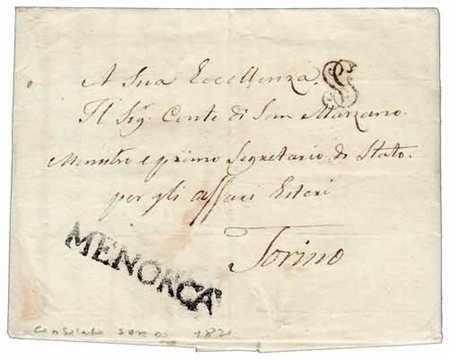 A Sua Eccellenza
Il Sig. Conte di San Marzano
Ministro e primo Segretario di Stato
per gli affari Esteri
Torino
MENORCA
Consolato 1821